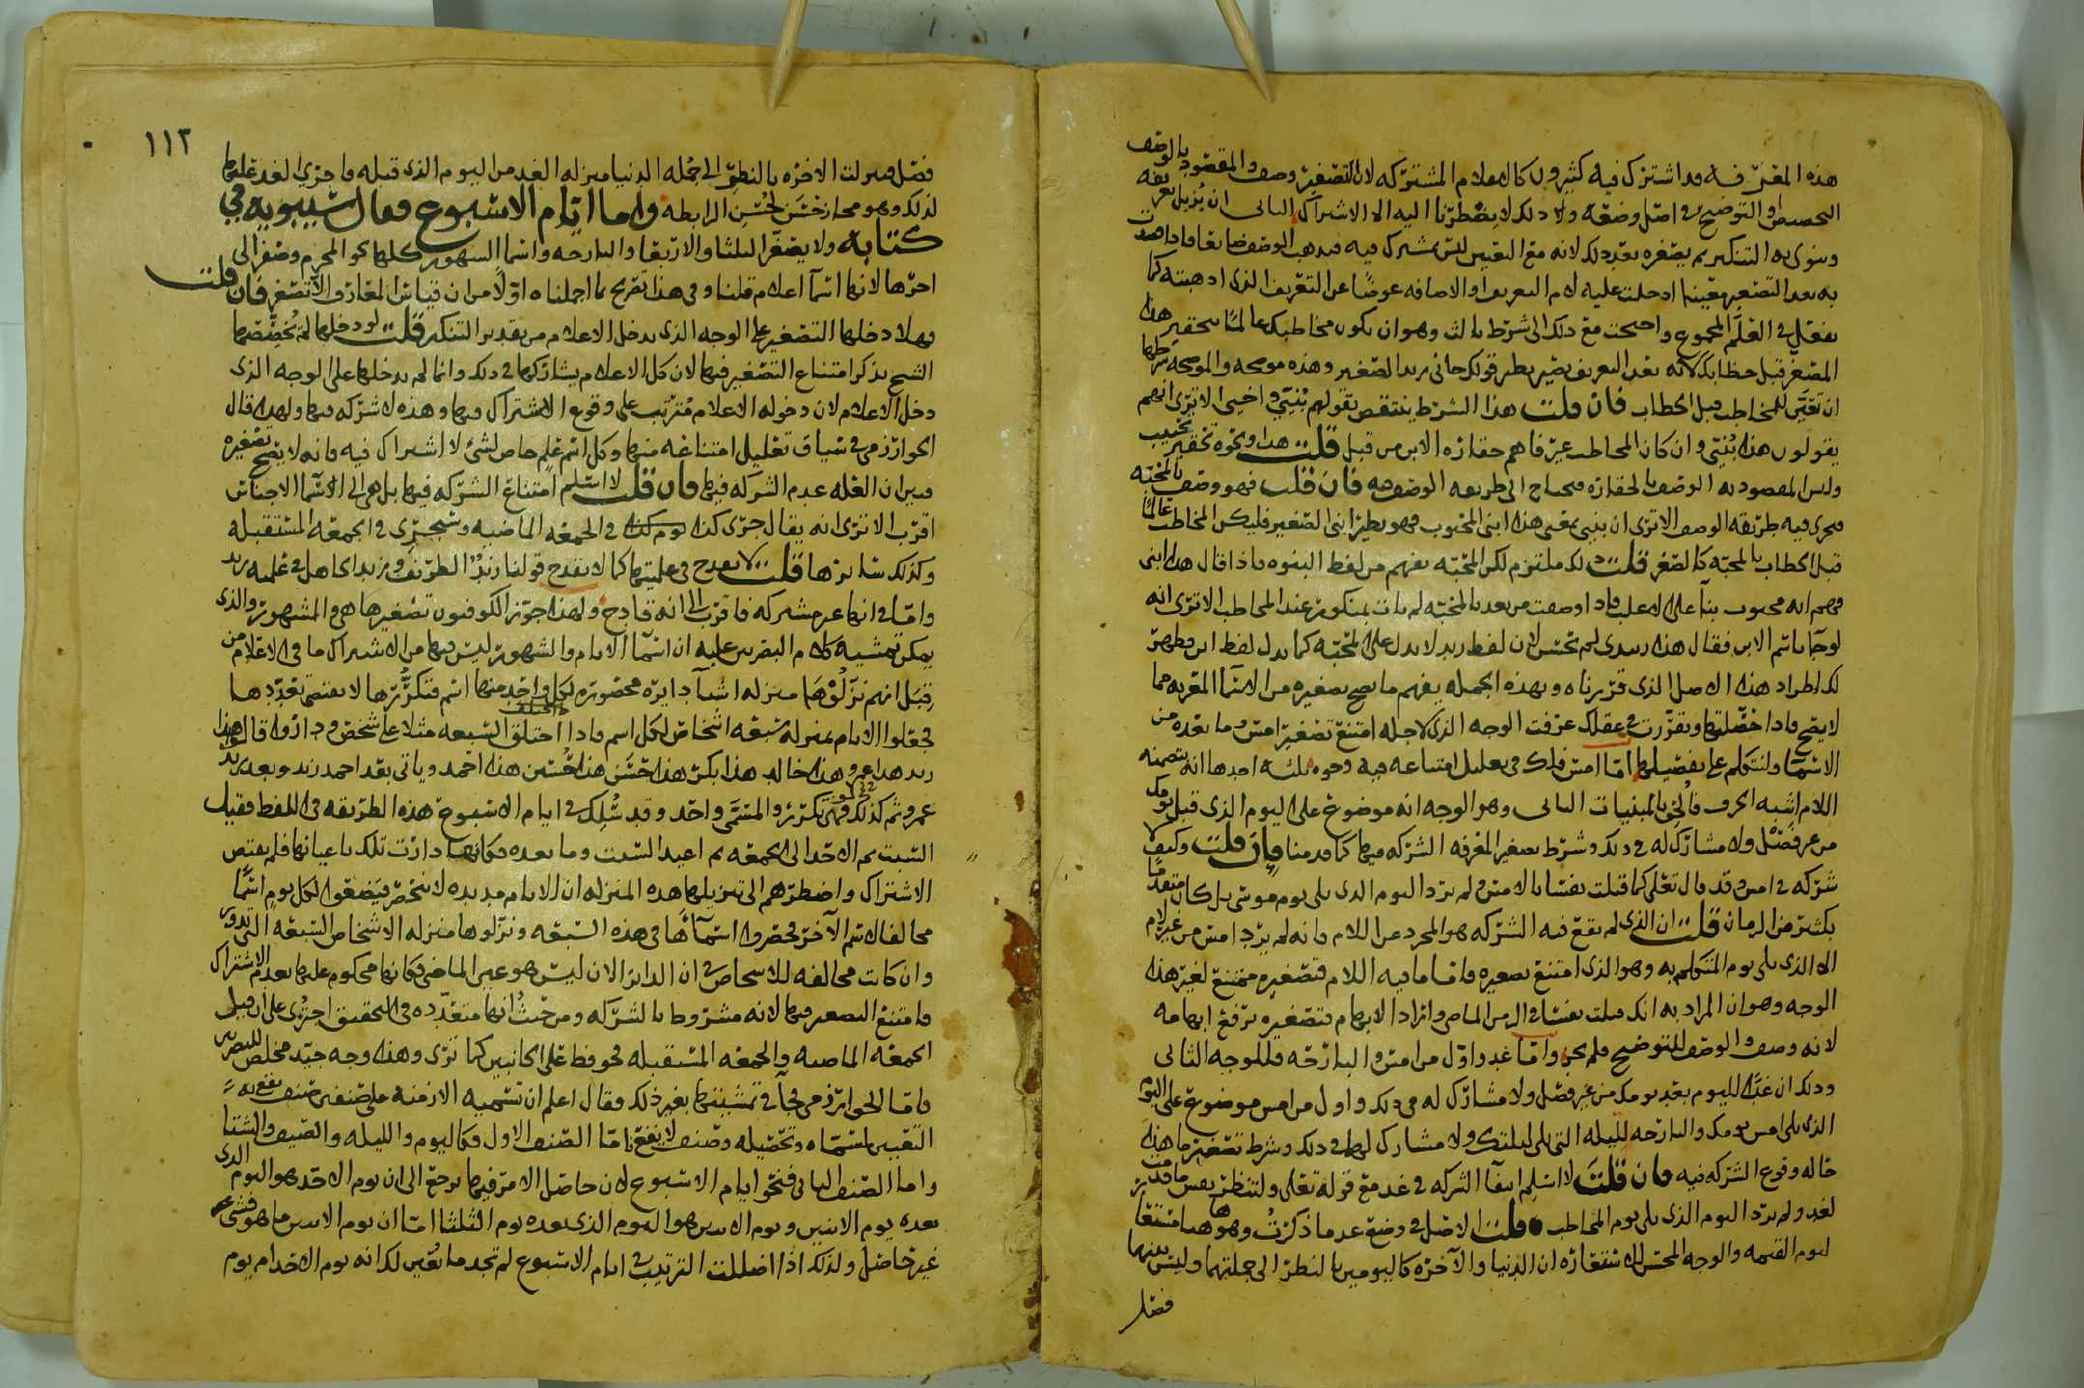 هذه المعرفه قد اشترك فيه كثيرون كالاعلام المشتركه لان التصغير وصف والمقصود بالوصف
التخصيص او التوضيح في اصل وضعه ولا ذلك لا يضطرنا اليه الا الاشتراك الثاني ان يزيل تعريفه
وينوى به التنكير ثم يصغره بعد ذلك لانه مع التعيين ليس بمشترك فيه
به بعد التصغير معينا ادخلت عليه لام التعريف او الاضافه عوضا عن التعريف الذي اذهبته كما
يفعل في العلم المجموع واحتجت مع ذلك الى شرط ثالث وهو ان يكون مخاطبك عالما بتحقير هذا
المصغر قبل خطابك لانه بعد التعريف يصير نظير قولك جاني زيد الصغير وهذه موضحه والموضحه شرطها
ان تتعين للمخاطب قبل الخطاب فان قلت هذا الشرط ينتقض بقولهم بُنيّي واخيي الا ترى انهم
يقولون هذا بُنيّي وان كان المخاطب غير فاهم حقارة الابن من قبل قلت هذا ونحوه تحقير تحبيب
وليس المقصود به الوصف بالحقاره فيحتاج الى طريقه الوصف فيه فان قلت فهو وصف بالمحبه
فيجرى فيه طريقه الوصف الا ترى ان بنيي بمعنى هذا ابني المحبوب فهو نظير ابني الصغير فليكن المخاطب عالما
قبل الخطاب بالمحبه كالصغر قلت ذلك ملتزم لكن المحبه تفهم من لفظ البنوه فاذا قال هذا ابني
فهم انه محبوب بنا على الاغلب فاذا وصفت من بعد بالمحبه لم يات بمنكور عند المخاطب الا ترى انه
لو جا باسم الابن فقال هذا زييدي لم يحسن لان لفظ زيد لا يدل على المحبه كما يدل لفظ ابن فظهر
لك اطراد هذا الاصل الذي قررناه وبهذه الجمله يفهم ما يصح تصغيره من الاسما المعربه مما
لا يصح فاذا حصلتها وتقررت في عقلك عرفت الوجه الذي لاجله امتنع تصغير امس وما بعده من
الاسما ولنتكلم على تفصيلها اما امس فلك في تعليل امتناعه فيه وجوه ثلثه احدها انه بتضمنه
اللام اشبه الحرف فالحق بالمبنيات الثاني وهو الوجه انه موضوع على اليوم الذي قبل يومك
من غير فصل ولا مشارك له في ذلك وشرط تصغير المعرفه الشركه فيها كما قدمنا فان قلت وكيف لا
شركه في امس وقد قال تعلى كما قتلت نفسا بالامس ولم يرد اليوم الذي يلي يوم موسى بل كان متقدما
بكثير من الزمان قلت ان الذي لم يقع فيه الشركه هو المجرد عن اللام فانه لم يرد امس من غير لام
الا الذي يلي يوم المتكلم به وهو الذي امتنع تصغيره واما ما فيه اللام فتصغيره ممتنع لغير هذا
الوجه وهو ان المراد به انك قتلت نفسا في الزمن الماضي واراد الابهام فتصغيره يرفع ابهامه
لانه وصف والوصف للتوضيح فلم يجز واما غد واول من امس والبارحه فللوجه الثاني
وذلك ان غدا لليوم بعد يومك من غير فصل ولا مشارك له في ذلك واول من امس موضوع على اليوم
الذي يلي امس يومك والبارحه لليله التي تلي ليلتك ولا مشارك لها في ذلك وشرط تصغير ما هذه
حاله وقوع الشركه فيه فان قلت لا اسلم انتفا الشركه في غد مع قوله تعلى ولتنظر نفس ما قدمت
لغد ولم يرد اليوم الذي يلي يوم المخاطب قلت الاصل في وضع غد ما ذكرت وهو ها هنا مستعار
ليوم القيمه والوجه المحسن للاستعاره ان الدنيا والآخره كاليومين بالنظر الى جملتهما وليس بينهما
فصل
١١٣
فصل فنزلت الاخره بالنظر الى جمله الدنيا منزله الغد من اليوم الذي قبله فاجري الغد عليها
لذلك وهو مجاز حسن لحسن الرابطه واما ايام الاسبوع فقال سيبويه في
كتابه ولا يصغر الثلثا والاربعا والبارحه واسما الشهور كلها نحو المحرم وصفر الى
اخرها لانها اسما اعلام قلنا وفي هذا تصريح بما اجملناه اولا من ان قياس المعارف الا تصغر فان قلت
فهلا دخلها التصغير على الوجه الذي يدخل الاعلام من تقدير التنكير قلت لو دخلها لم يخصصها
الشيخ بذكر امتناع التصغير فيها لان كل الاعلام يشاركها في ذلك وانما لم يدخلها على الوجه الذي
دخل الاعلام لان دخوله الاعلام مترتب على وقوع الاشتراك فيها وهذه لا شركه فيها ولهذا قال
الخوارزمي في سياق تعليل امتناعه منها وكل اسم علم خاص لشئ لا اشتراك فيه فانه لا يصح تصغيره
فبين ان العله عدم الشركه فيها فان قلت لا اسلم امتناع الشركه فيها بل هي الى الاسما الاجناس
اقرب الا ترى انه يقال جرى كذا في الجمعه الماضيه وسيجري في الجمعه المستقبله
وكذلك سايرها قلت لا يقدح في علميتها كما لا يقدح قولنا زيد الظريف وزيد الجاهل في علميه زيد
واما انها غير مشتركه فاقرب الى انه قادح ولهذا جوز الكوفيون تصغيرها هي والمشهور والذي
يمكن تمشيه كلام البصريين عليه ان اسما الايام والشهور ليس فيها من الاشتراك ما في الاعلام من
قبل انهم نزلوها منزله اشيا دايره محصوره لكل واحد منها اسم فتكررها لا يقتضي تعددها
فجعلوا الايام بمنزله سبعه اشخاص لكل اسم فاذا اختلف السبعه مثلا على شخص وداروا قال هذا
زيد هذا عمرو هذا خالد هذا بكر هذا حسن هذا حسين هذا احمد وياتي بعد احمد زيد وبعد زيد
عمرو ثم كذلك فهي تكرر والمسمى واحد وقد سُلك في ايام الاسبوع هذه الطريقه في اللفظ فقيل
السبت ثم الاحد الى الجمعه ثم اعيد السبت وما بعده فكانها دارت تلك باعيانها فلم يقتض
الاشتراك واضطرهم الى تنزيلها هذه المنزله ان الايام مديده لا تنحصر فيضعوا لكل يوم اسما
مخالفا لاسم الآخر فحصروا اسماها في هذه السبعه ونزلوها منزله الاشخاص السبعه التي تدور
وان كانت مخالفه للاشخاص في ان الداير الان ليس هو عين الماضي فكانها محكوم عليها بعدم الاشتراك
فامتنع التصغير فيها لانه مشروط بالشركه ومن حيث انها متعدده في التحقيق اجري على ان قيل
الجمعه الماضيه والجمعه المستقبله فحوفظ على الجانبين كما ترى وهذا وجه جيد مخلص للبصريين
فاما الخوارزمي فجا في تمشيتها بغير ذلك فقال اعلم ان تسميه الازمنه على صنفين صنف يقع به
التعيين لمسماه وتحصيله وصنف لا يقع فاما الصنف الاول فكاليوم والليله والصيف والشتا
واما الصنف الثاني فنحو ايام الاسبوع لان حاصل الامر فيها يرجع الى ان يوم الاحد هو اليوم الذي
بعده يوم الاثنين ويوم الاثنين هو اليوم الذي بعده يوم الثلثا اما ان يوم الاثنين ما هو فشئ
غير حاصل ولذلك اذا اضللت الترتيب في ايام الاسبوع لم تجد ما يعين لك انه يوم الاحد ام يوم